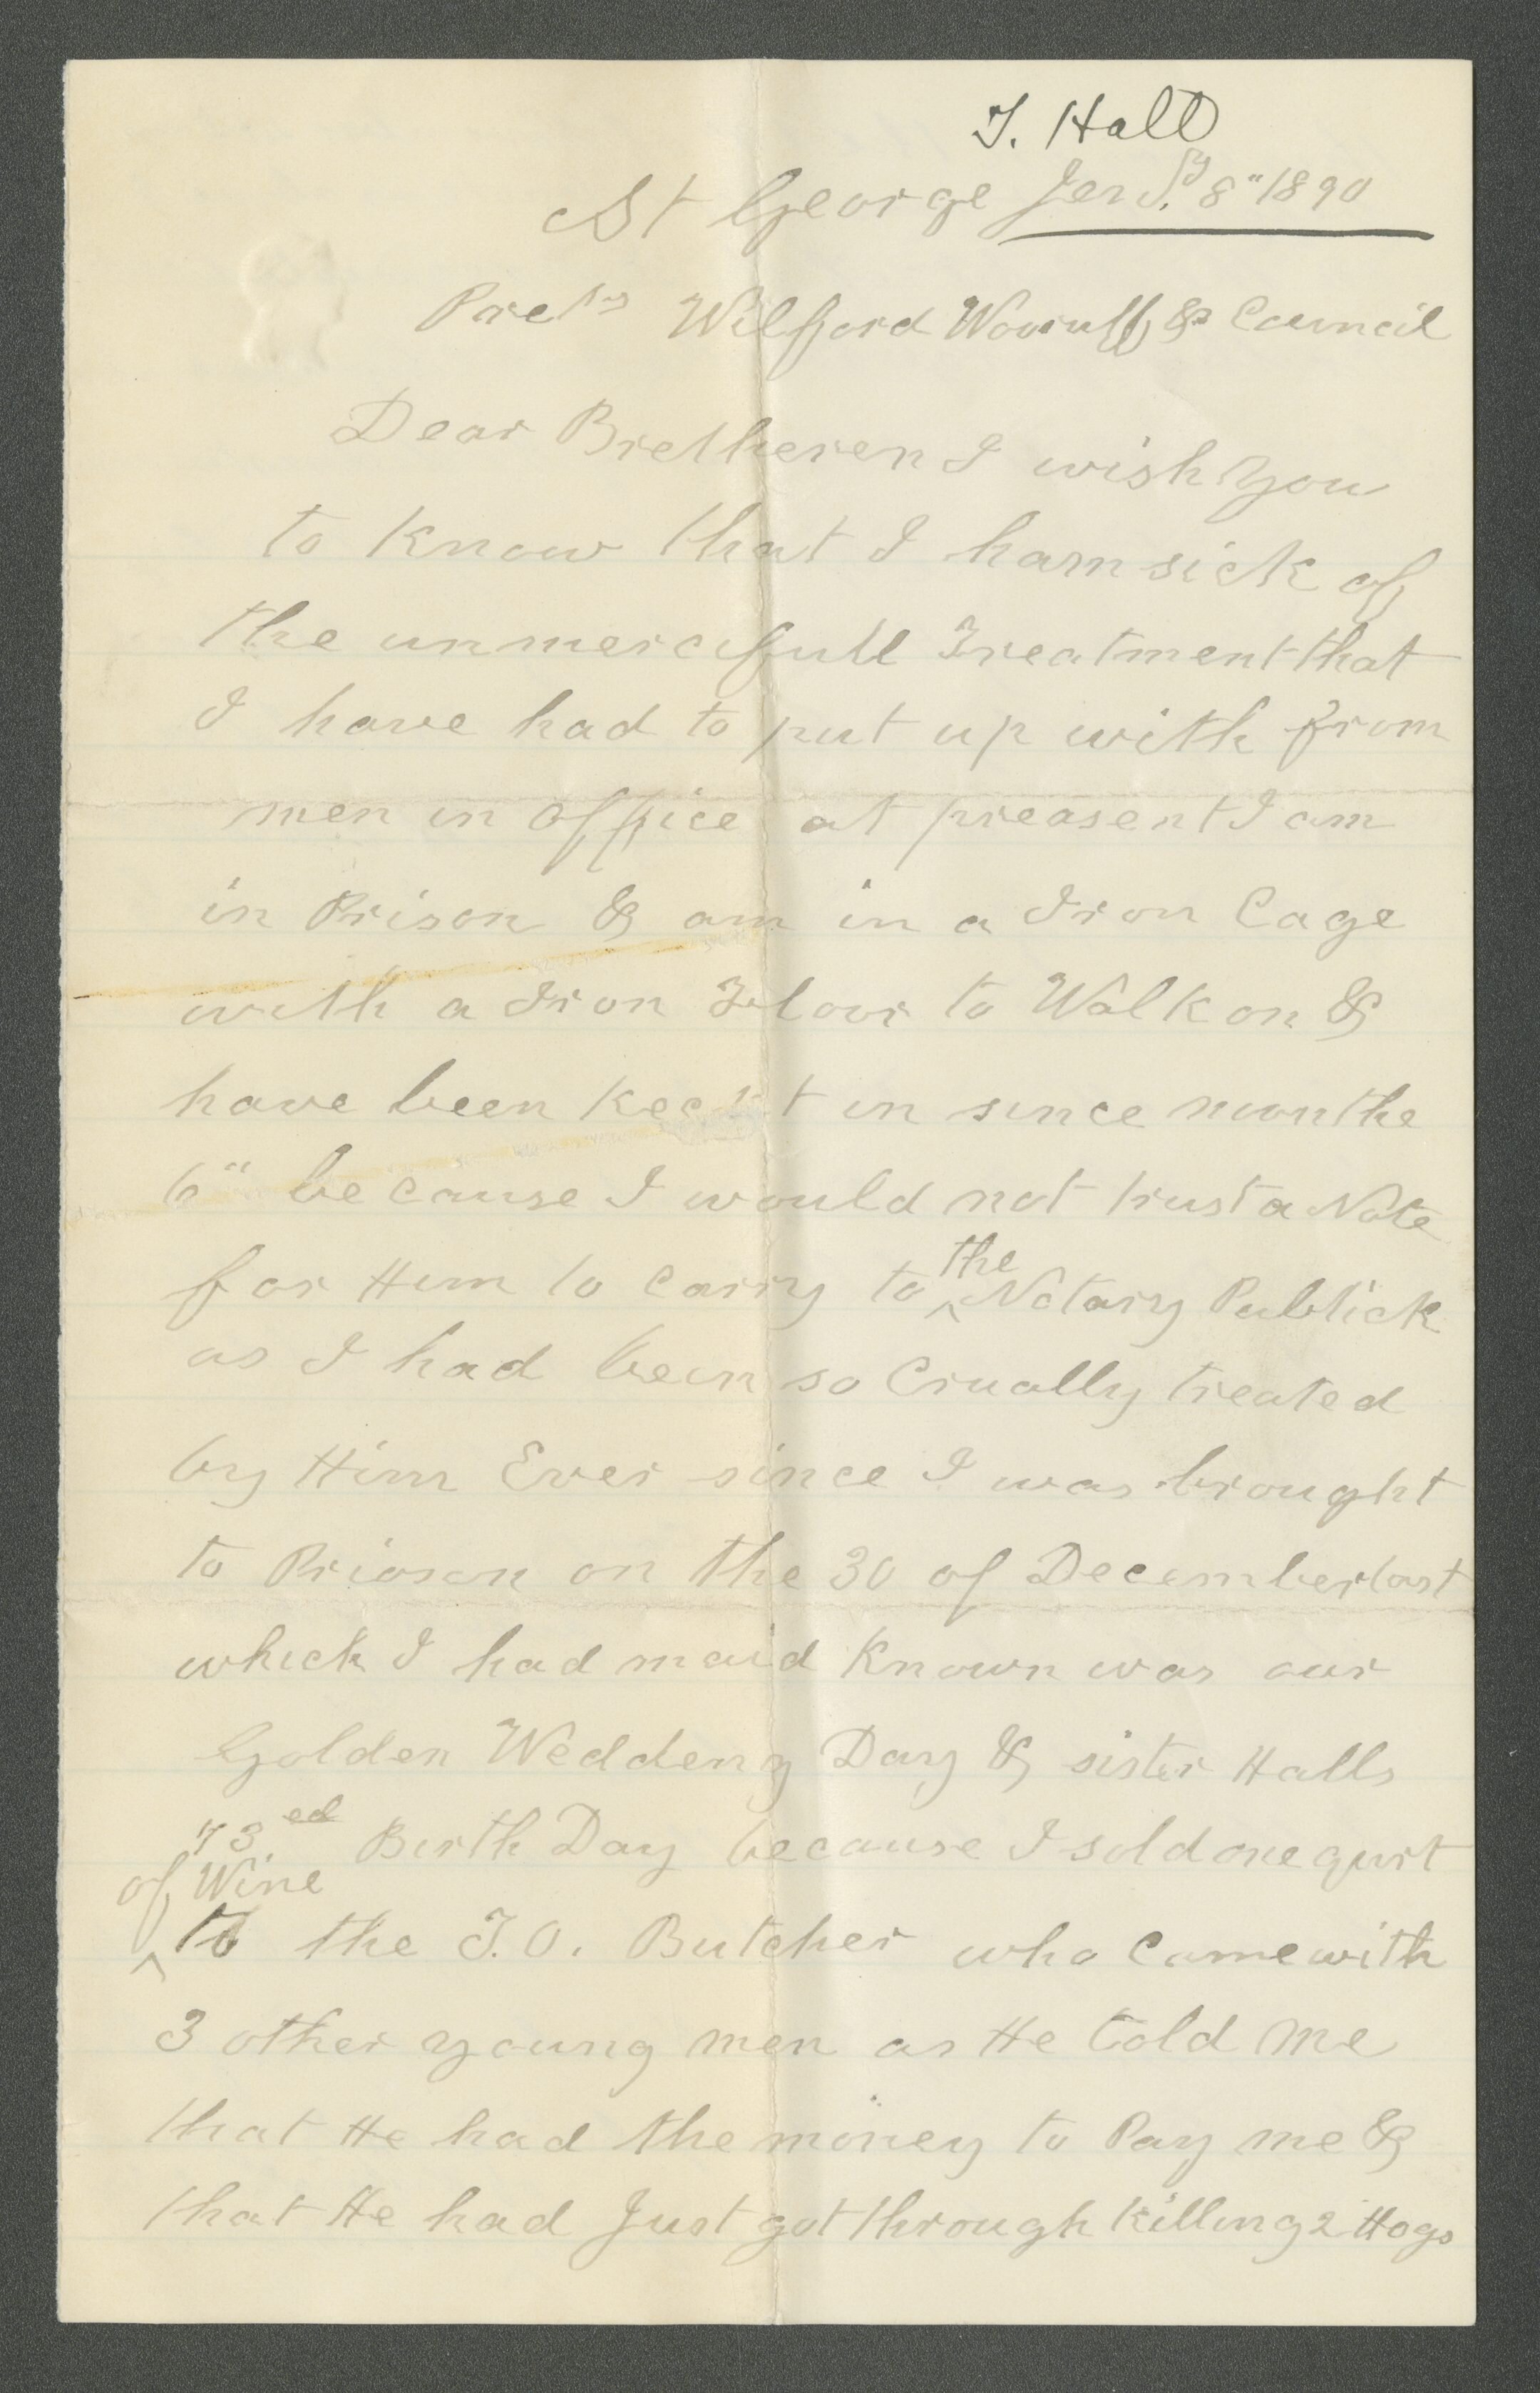 T. Hall
St George Jenry. 8" 1890
Wilford Wooruff & Council
Dear Bretheren I wish you
to know that I ham sick of
the unmercifull Treatment that
I have had to put up with from
men in office at preasent I am
in Prison & am in a Iron Cage
with a Iron Floor to Walk on &
have been in since
6" because I would not trust a Note
for Him to carry to the Notary Publick
as I had been so Crually treated
by Him Ever since I was brought
to Prioson on the 30 of December last
which I had maid Known was our
Golden Weddeng Day & sister Halls
73ed Birth Day because I sold one qurt
of Wine
to the T.O. Butcher who came with
3 other young men as He told me
that He had the money to Pay me &
that He had Just got through Killing 2 Hogs